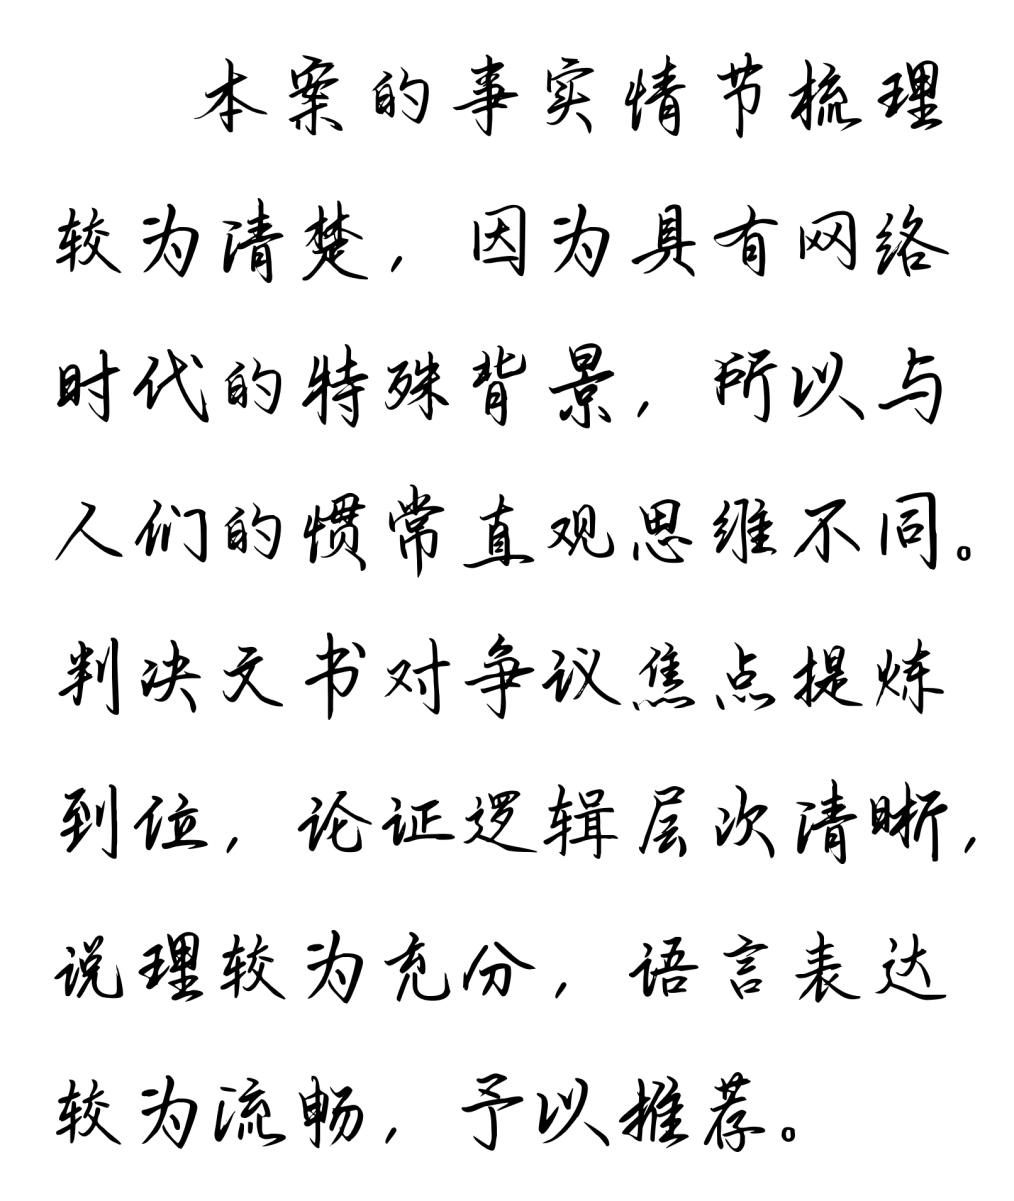 本案的事实情节梳理
较为清楚，因为具有网络
时代的特殊背景，所以与
人们的惯常直观思维不同。
判决文书对争议焦点提炼
到位，论证逻辑层次清晰，
说理较为充分，语言表达
较为流畅，予以推荐。